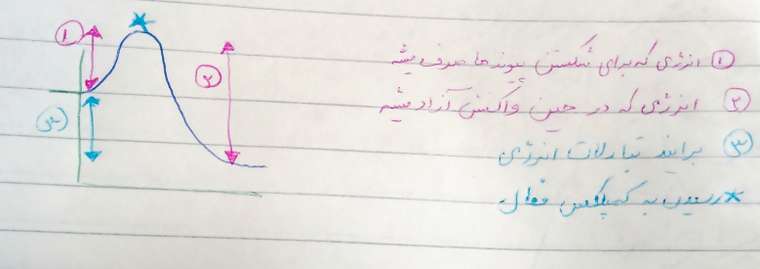 ①
②
③
① انرژی که برای شکستن پیوندها صرف میشه
② انرژی که در حین واکنش آزاد میشه
③ برایند تبادلات انرژی
* رسیدن به کمپلکس فعال